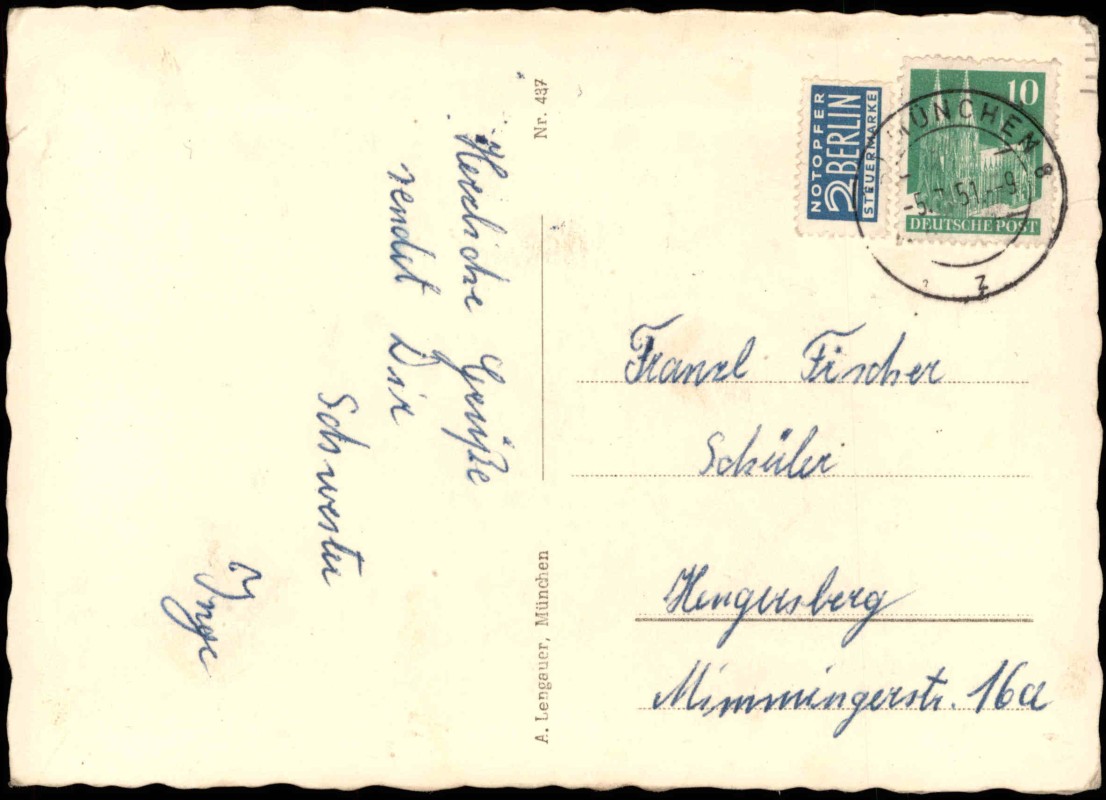 Herzliche Grüße
sendet Dir
Schwester
Inge
Nr. 437
A. Lengauer, München
NOTOPFER
2 BERLIN
STEUERMARKE
10
DEUTSCHE POST
MÜNCHEN 8
-5.7.51.-9
z
Franzl Fischer
Schüler
Hengersberg
Mimmingerstr. 16a